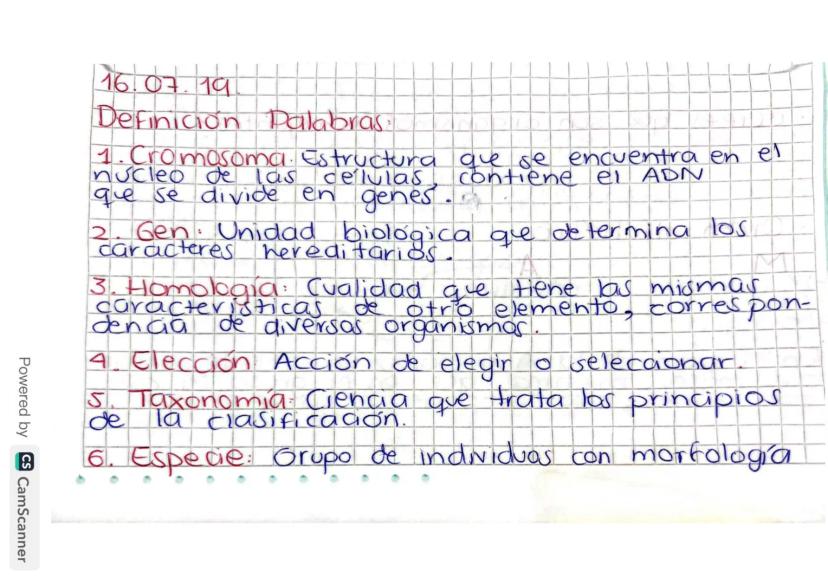 16.07.19
Definición Palabras:
1. Cromosoma. Estructura que se encuentra en el
nucleo de las células, contiene el ADN
que se divide en genes.
2. Gen: Unidad biológica que determina los
caracteres hereditarios.
3. Homología: Cualidad que tiene las mismas
características de otro elemento, correspon-
dencia de diversos organismos.
4. Elección Acción de elegir o seleccionar.
5. Taxonomía: Ciencia que trata los principios
de la clasificación.
6. Especie: Grupo de individuos con morfología
Powered by CS CamScanner